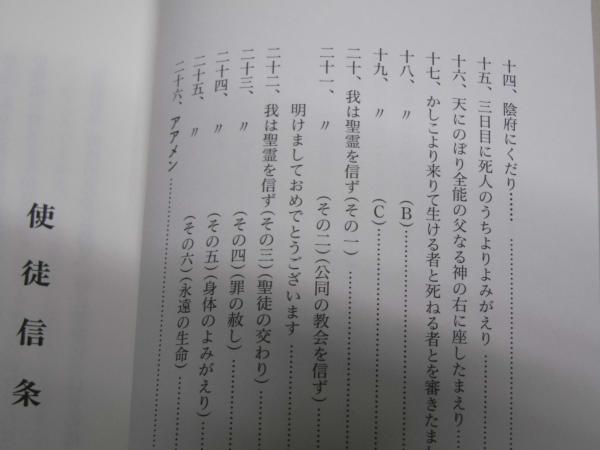 十四、陰府にくだり……
十五、三日目に死人のうちよりよみがえり………
十六、天にのぼり全能の父なる神の右に座したまえり……
十七、かしこより来りて生ける者と死ねる者とを審きたま
十八、〃（B）………
十九、〃（C）………
二十、我は聖霊を信ず（その一）………
二十一、〃（その二）（公同の教会を信ず）
明けましておめでとうございます………
二十二、我は聖霊を信ず（その三）（聖徒の交わり）
二十三、〃（その四）（罪の赦し）………
二十四、〃（その五）（身体のよみがえり）
二十五、〃（その六）（永遠の生命）………
二十六、アアメン………
使徒信条